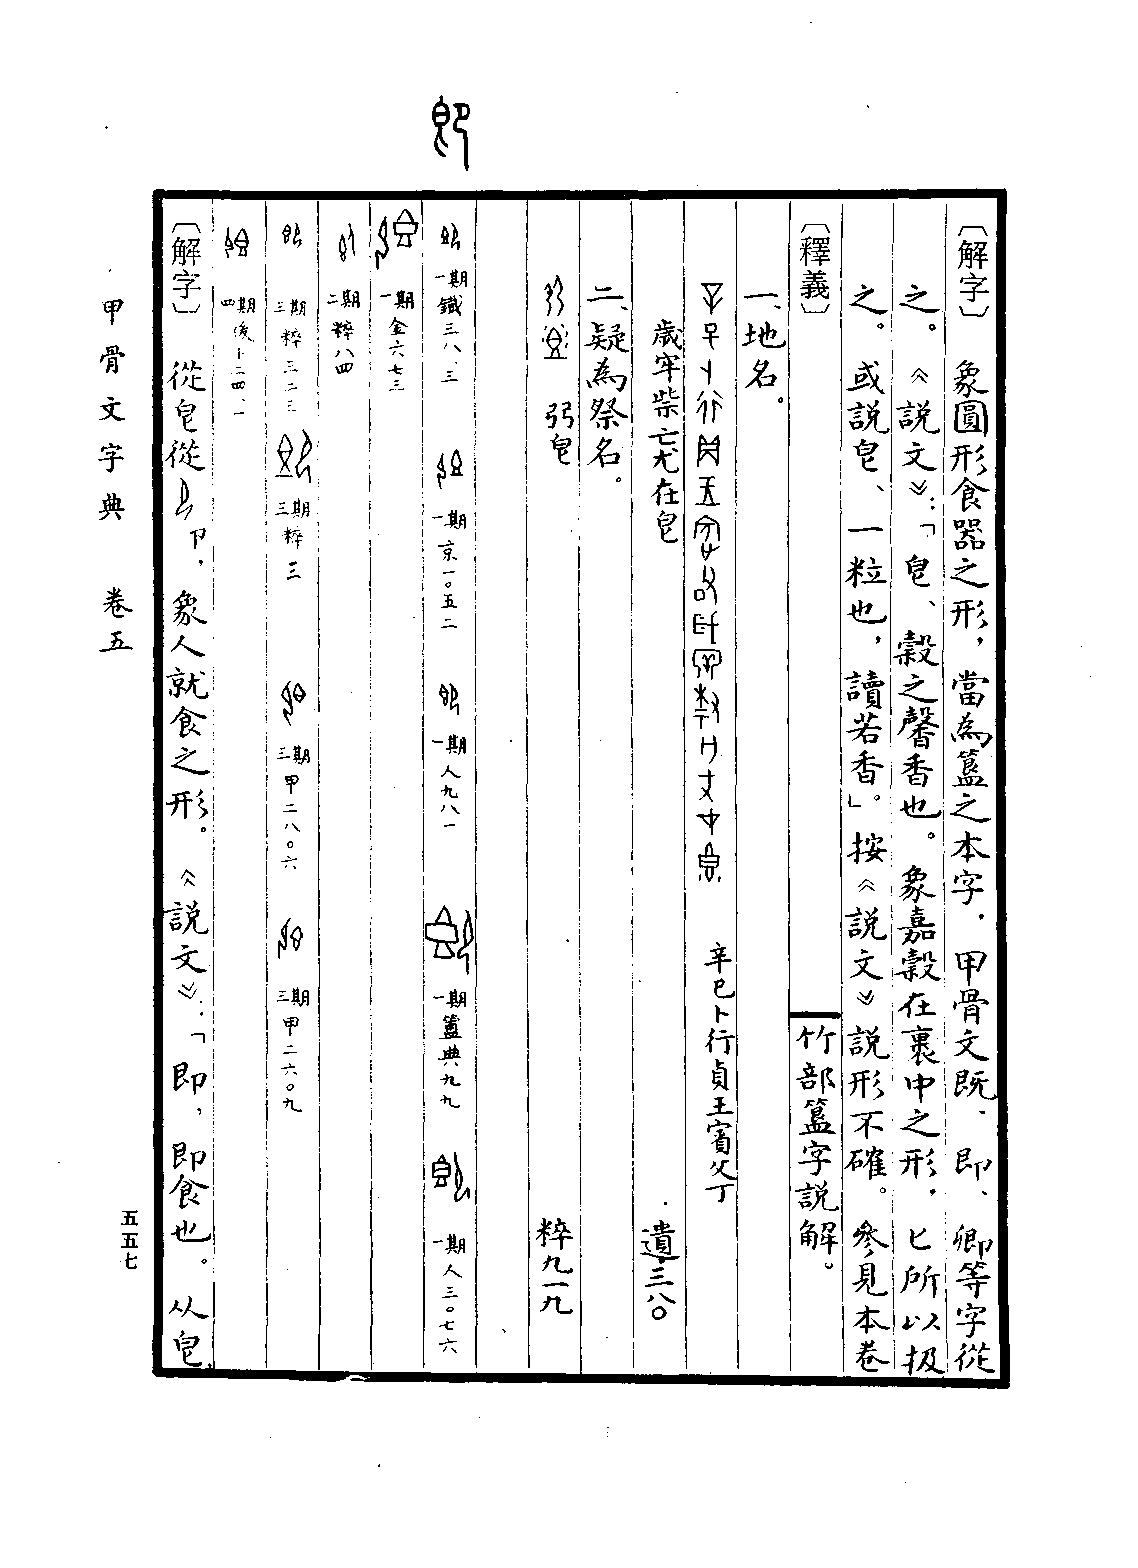 〔解字〕 象圓形食器之形，當為簋之本字．甲骨文既、即、卿等字從
之。《說文》：「皀、穀之馨香也。象嘉穀在裹中之形．匕所以扱
之。或說皀、一粒也，讀若香」。按《說文》說形不確。參見本卷
竹部簋字說解。
〔釋義〕
一、地名。
辛巳卜行貞王賓父丁
歲牢祡亡尤在皀
遺三八〇
二、疑為祭名。
弜皀
粹九一九
一期 鐵三八．三
一期 京一〇五二
一期 人九八一
一期 簠典九九
一期 人三〇七六
一期 金六七三
二期 粹八四
三期 粹三二三
三期 粹三
三期 甲二八〇六
三期 甲二六〇九
四期 後下二四．一
〔解字〕 從皀從卩，象人就食之形。《說文》：「即，即食也。从皀
甲骨文字典 卷五
五五七